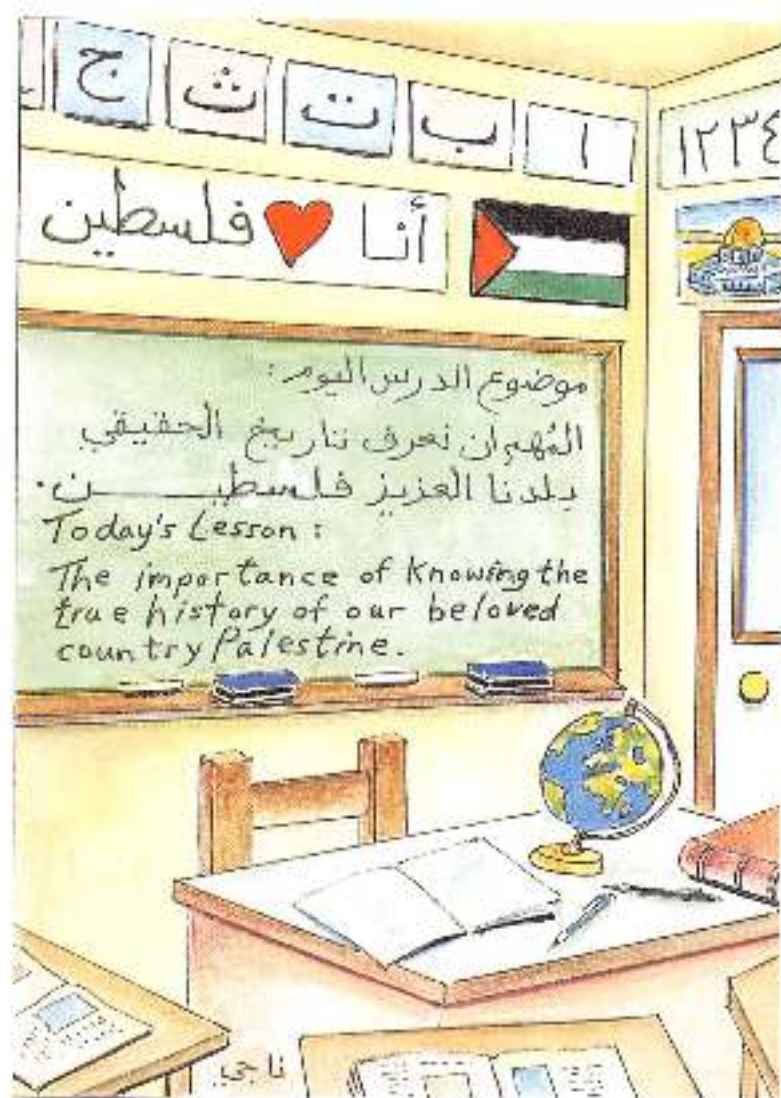 ا ب ت ث ج
١٢٣٤
أنا ❤ فلسطين
موضوع الدرس اليوم:
المُهم ان نعرف تاريخ الحقيقي
بلدنا العزيز فلسطيـــــن.
Today's Lesson:
The importance of Knowing the
true history of our beloved
country Palestine.
ناجي